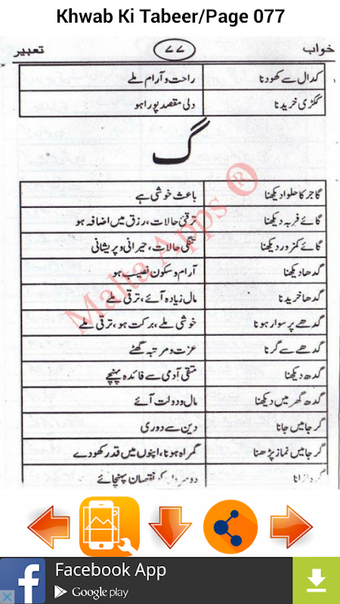 Khwab Ki Tabeer/Page 077
خواب ۷۷ تعبیر
کدال سے کھودنا راحت و آرام ملے
ککڑی خریدنا دلی مقصد پورا ہو
گ
گاجر کا حلوا دیکھنا باعث خوشی ہے
گائے فربہ دیکھنا ترقئ حالات، رزق میں اضافہ ہو
گائے کمزور دیکھنا تنگی حالات، حیرانی و پریشانی
گدھا دیکھنا آرام و سکون نصیب ہو
گدھا خریدنا مال زیادہ آئے، ترقی ملے
گدھے پر سوار ہونا خوشی ملے، برکت ہو، ترقی ملے
گدھے سے گرنا عزت و مرتبہ گھٹے
گدھ دیکھنا متقی آدمی سے فائدہ پہنچے
گدھ گھر میں دیکھنا مال و دولت آئے
گرجا میں جانا دین سے دوری
گرجا میں نماز پڑھنا گمراہ ہونا، اپنوں میں قدر کھو دے
نقصان پہنچائے
Malta Apps ®
Facebook App
Google play